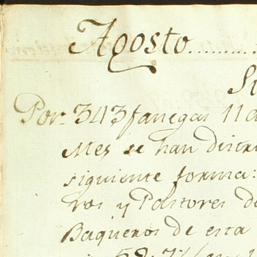 Agosto..........
Por 343 fanegas 11
Mes se han
siguiente forma:
ros y Pastores de
Baqueros de esta